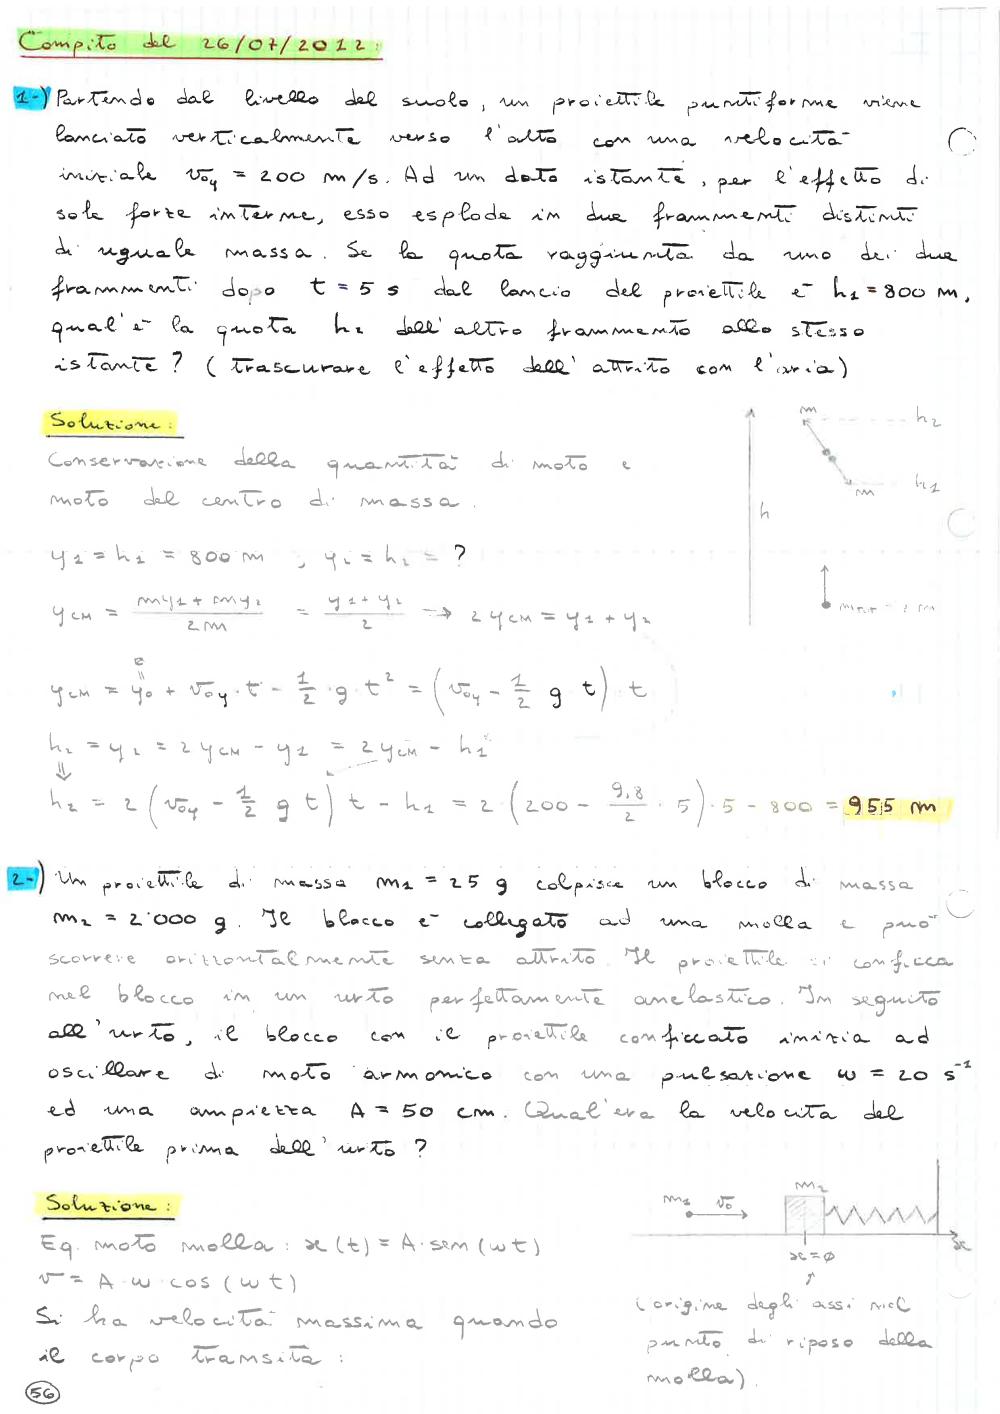 Compito del 26/07/2012:
1-) Partendo dal livello del suolo, un proiettile puntiforme viene
lanciato verticalmente verso l'alto con una velocità
iniziale v₀y = 200 m/s. Ad un dato istante, per l'effetto di
sole forze interne, esso esplode in due frammenti distinti
di uguale massa. Se la quota raggiunta da uno dei due
frammenti dopo t = 5 s dal lancio del proiettile è h₁ = 800 m,
qual'è la quota h₂ dell'altro frammento allo stesso
istante? (trascurare l'effetto dell'attrito con l'aria)
Soluzione:
Conservazione della quantità di moto e
moto del centro di massa.
m
h₂
h₁
m
h
y₁ = h₁ = 800 m , y₂ = h₂ = ?
yCM = (my₁ + my₂)/2m = (y₁ + y₂)/2 → 2 yCM = y₁ + y₂
mTOT = 2 m
yCM = y₀ + v₀y · t - 1/2 · g · t² = (v₀y - 1/2 g t) t
h₂ = y₂ = 2 yCM - y₁ = 2 yCM - h₁
⇓
h₂ = 2 (v₀y - 1/2 g t) t - h₁ = 2 · (200 - 9,8/2 · 5) · 5 - 800 = 955 m
2-) Un proiettile di massa m₁ = 25 g colpisce un blocco di massa
m₂ = 2'000 g. Il blocco è collegato ad una molla e può
scorrere orizzontalmente senza attrito. Il proiettile si conficca
nel blocco in un urto perfettamente anelastico. In seguito
all'urto, il blocco con il proiettile conficcato inizia ad
oscillare di moto armonico con una pulsazione ω = 20 s⁻¹
ed una ampiezza A = 50 cm. Qual'era la velocità del
proiettile prima dell'urto?
Soluzione:
m₁ v₀ m₂
x
x = ∅
Eq. moto molla: x(t) = A · sen(ωt)
v = A · ω · cos(ωt)
Si ha velocità massima quando
il corpo transita:
(origine degli assi nel
punto di riposo della
molla).
56